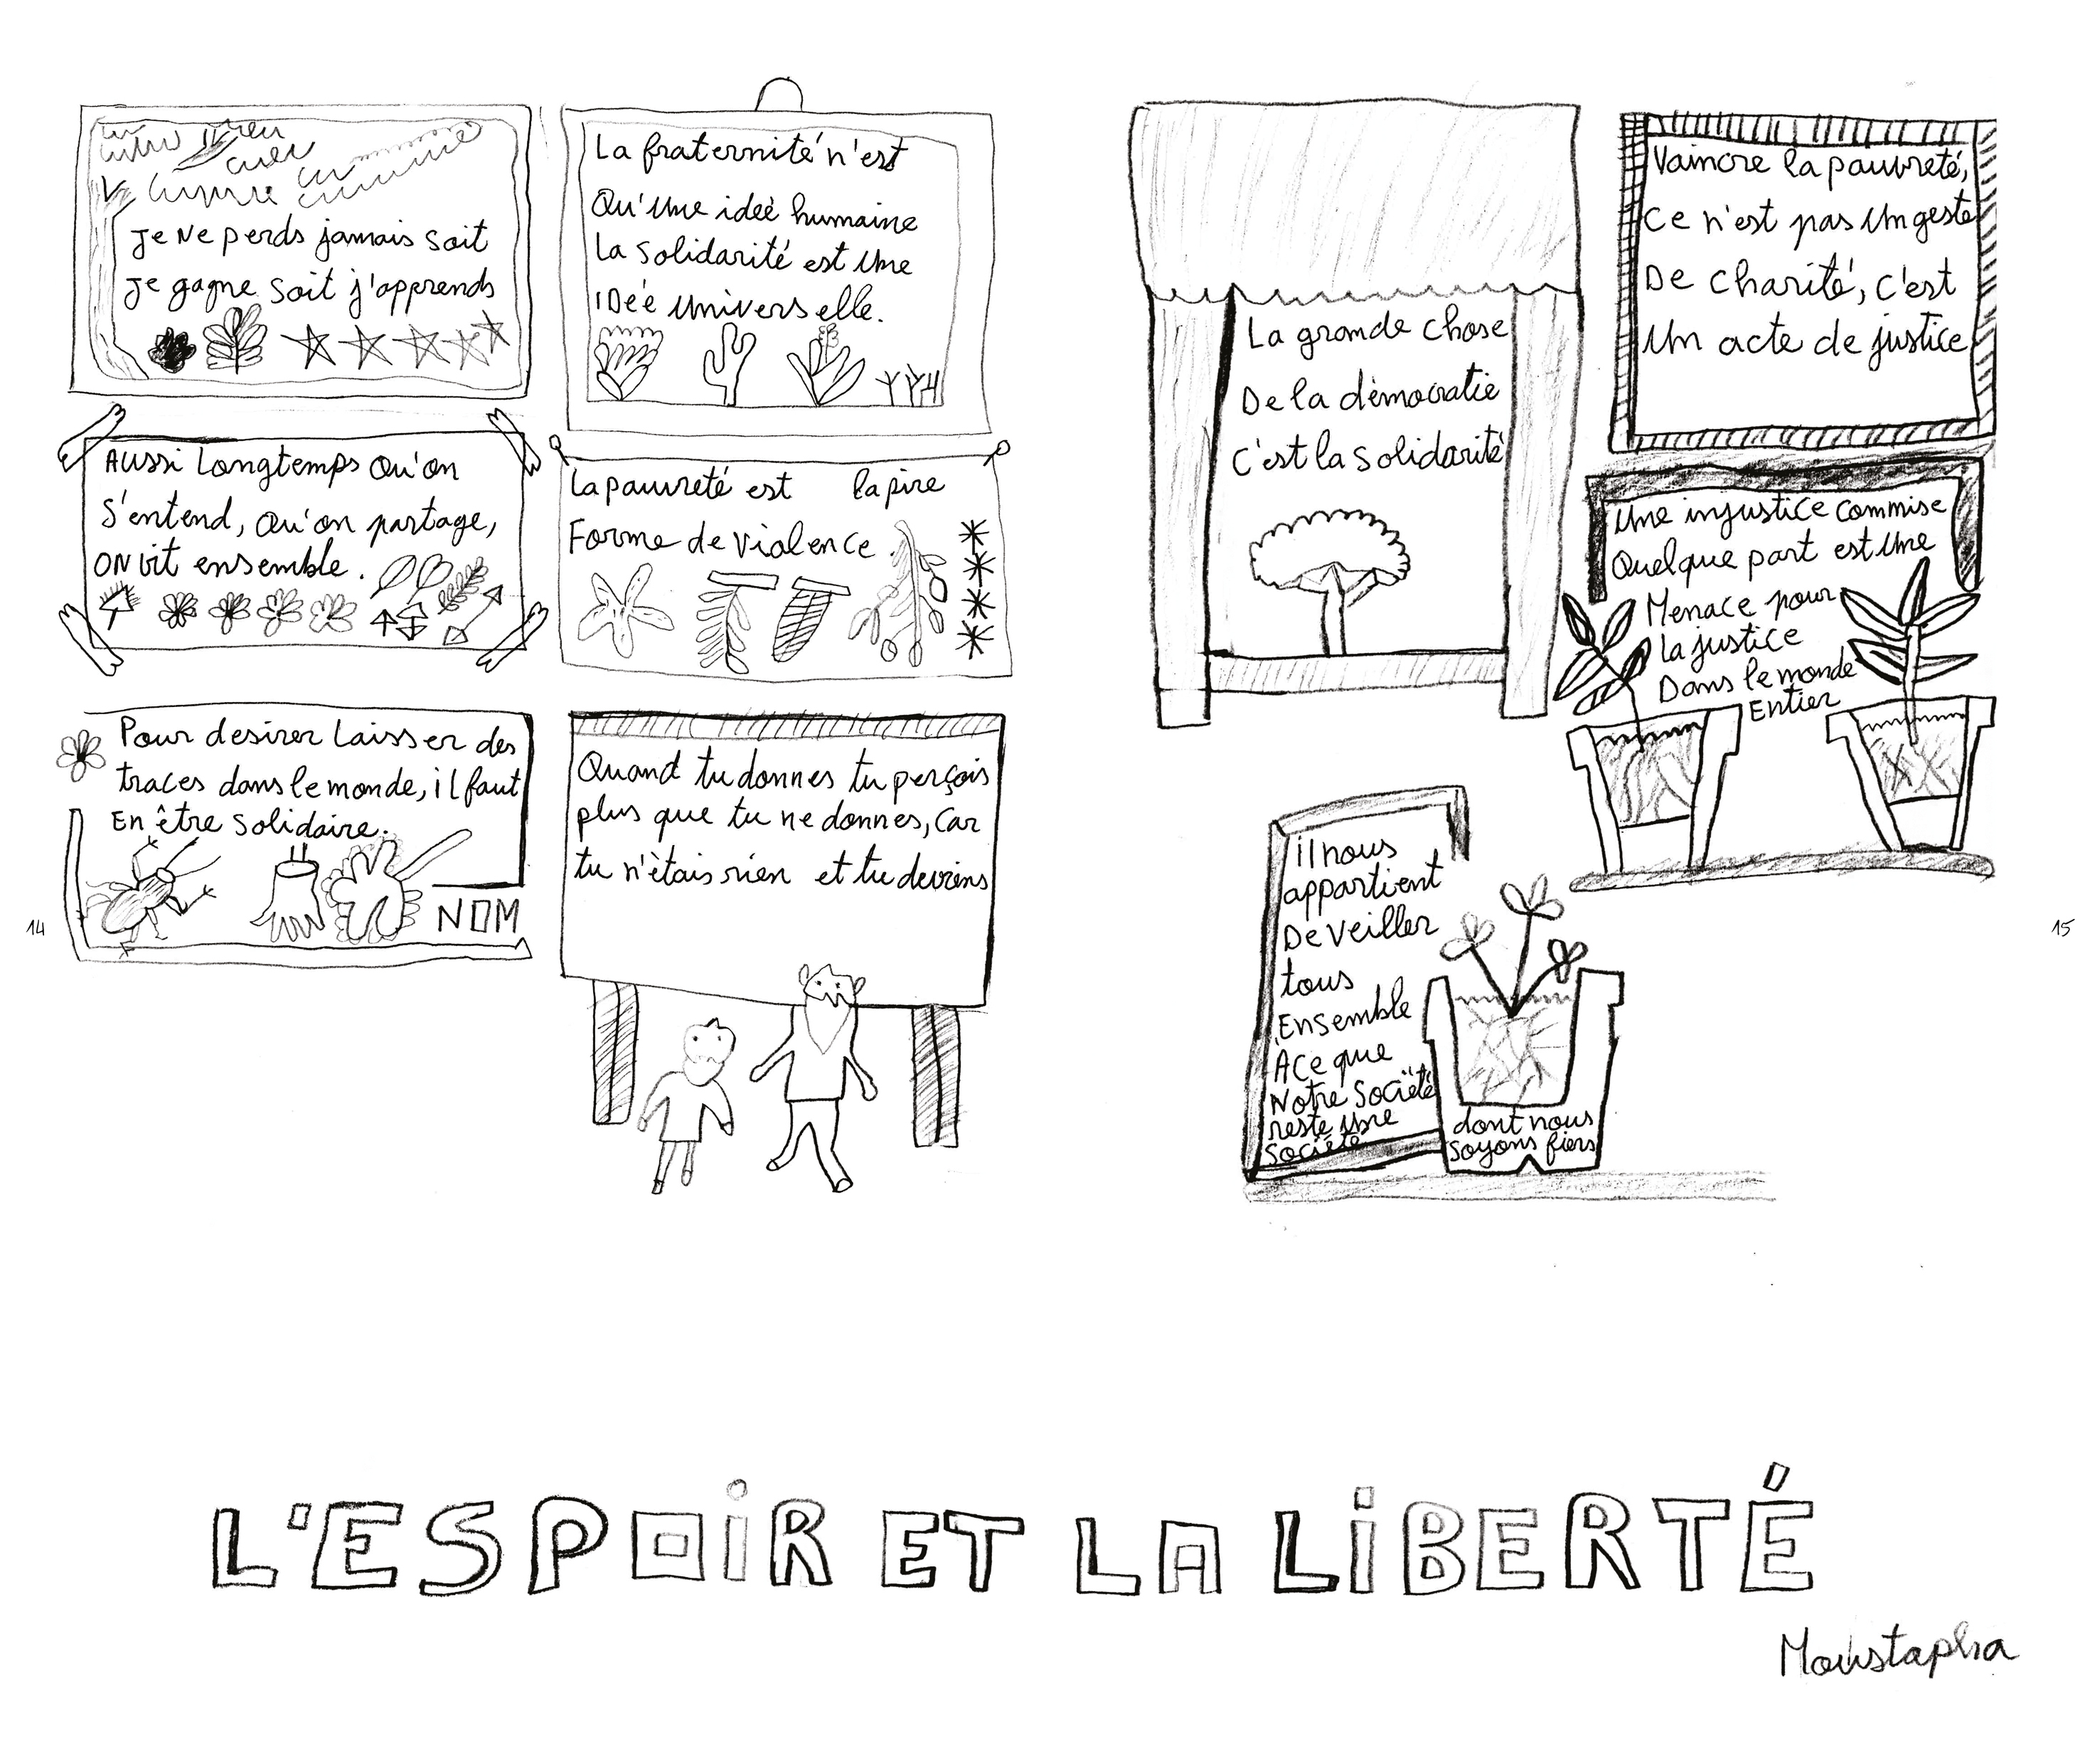 Je Ne perds jamais soit
Je gagne soit j'apprends
La fraternité n'est
Qu'une ideé humaine
La solidarité est Une
IDéé universelle.
Aussi Longtemps Qu'on
S'entend, Qu'on partage,
ON vit ensemble.
La pauvreté est la pire
Forme de violence.
Pour desirer Laisser des
traces dans le monde, il faut
En être solidaire.
NOM
Quand tu donnes tu perçois
plus que tu ne donnes, car
tu n'ètais rien et tu deviens
14
La grande chose
De la démocratie
C'est la solidarité
Vaincre la pauvreté,
Ce n'est pas Un geste
De charité, C'est
Un acte de justice
Une injustice commise
Quelque part est Une
Menace pour
La justice
Dans le monde
Entier
il nous
appartient
De Veiller
tous
Ensemble
À Ce que
Notre Sociëté
reste Une
Sociëté
dont nous
Soyons fiers
15
L'ESPOiR ET LA LiBERTÉ
Moustapha